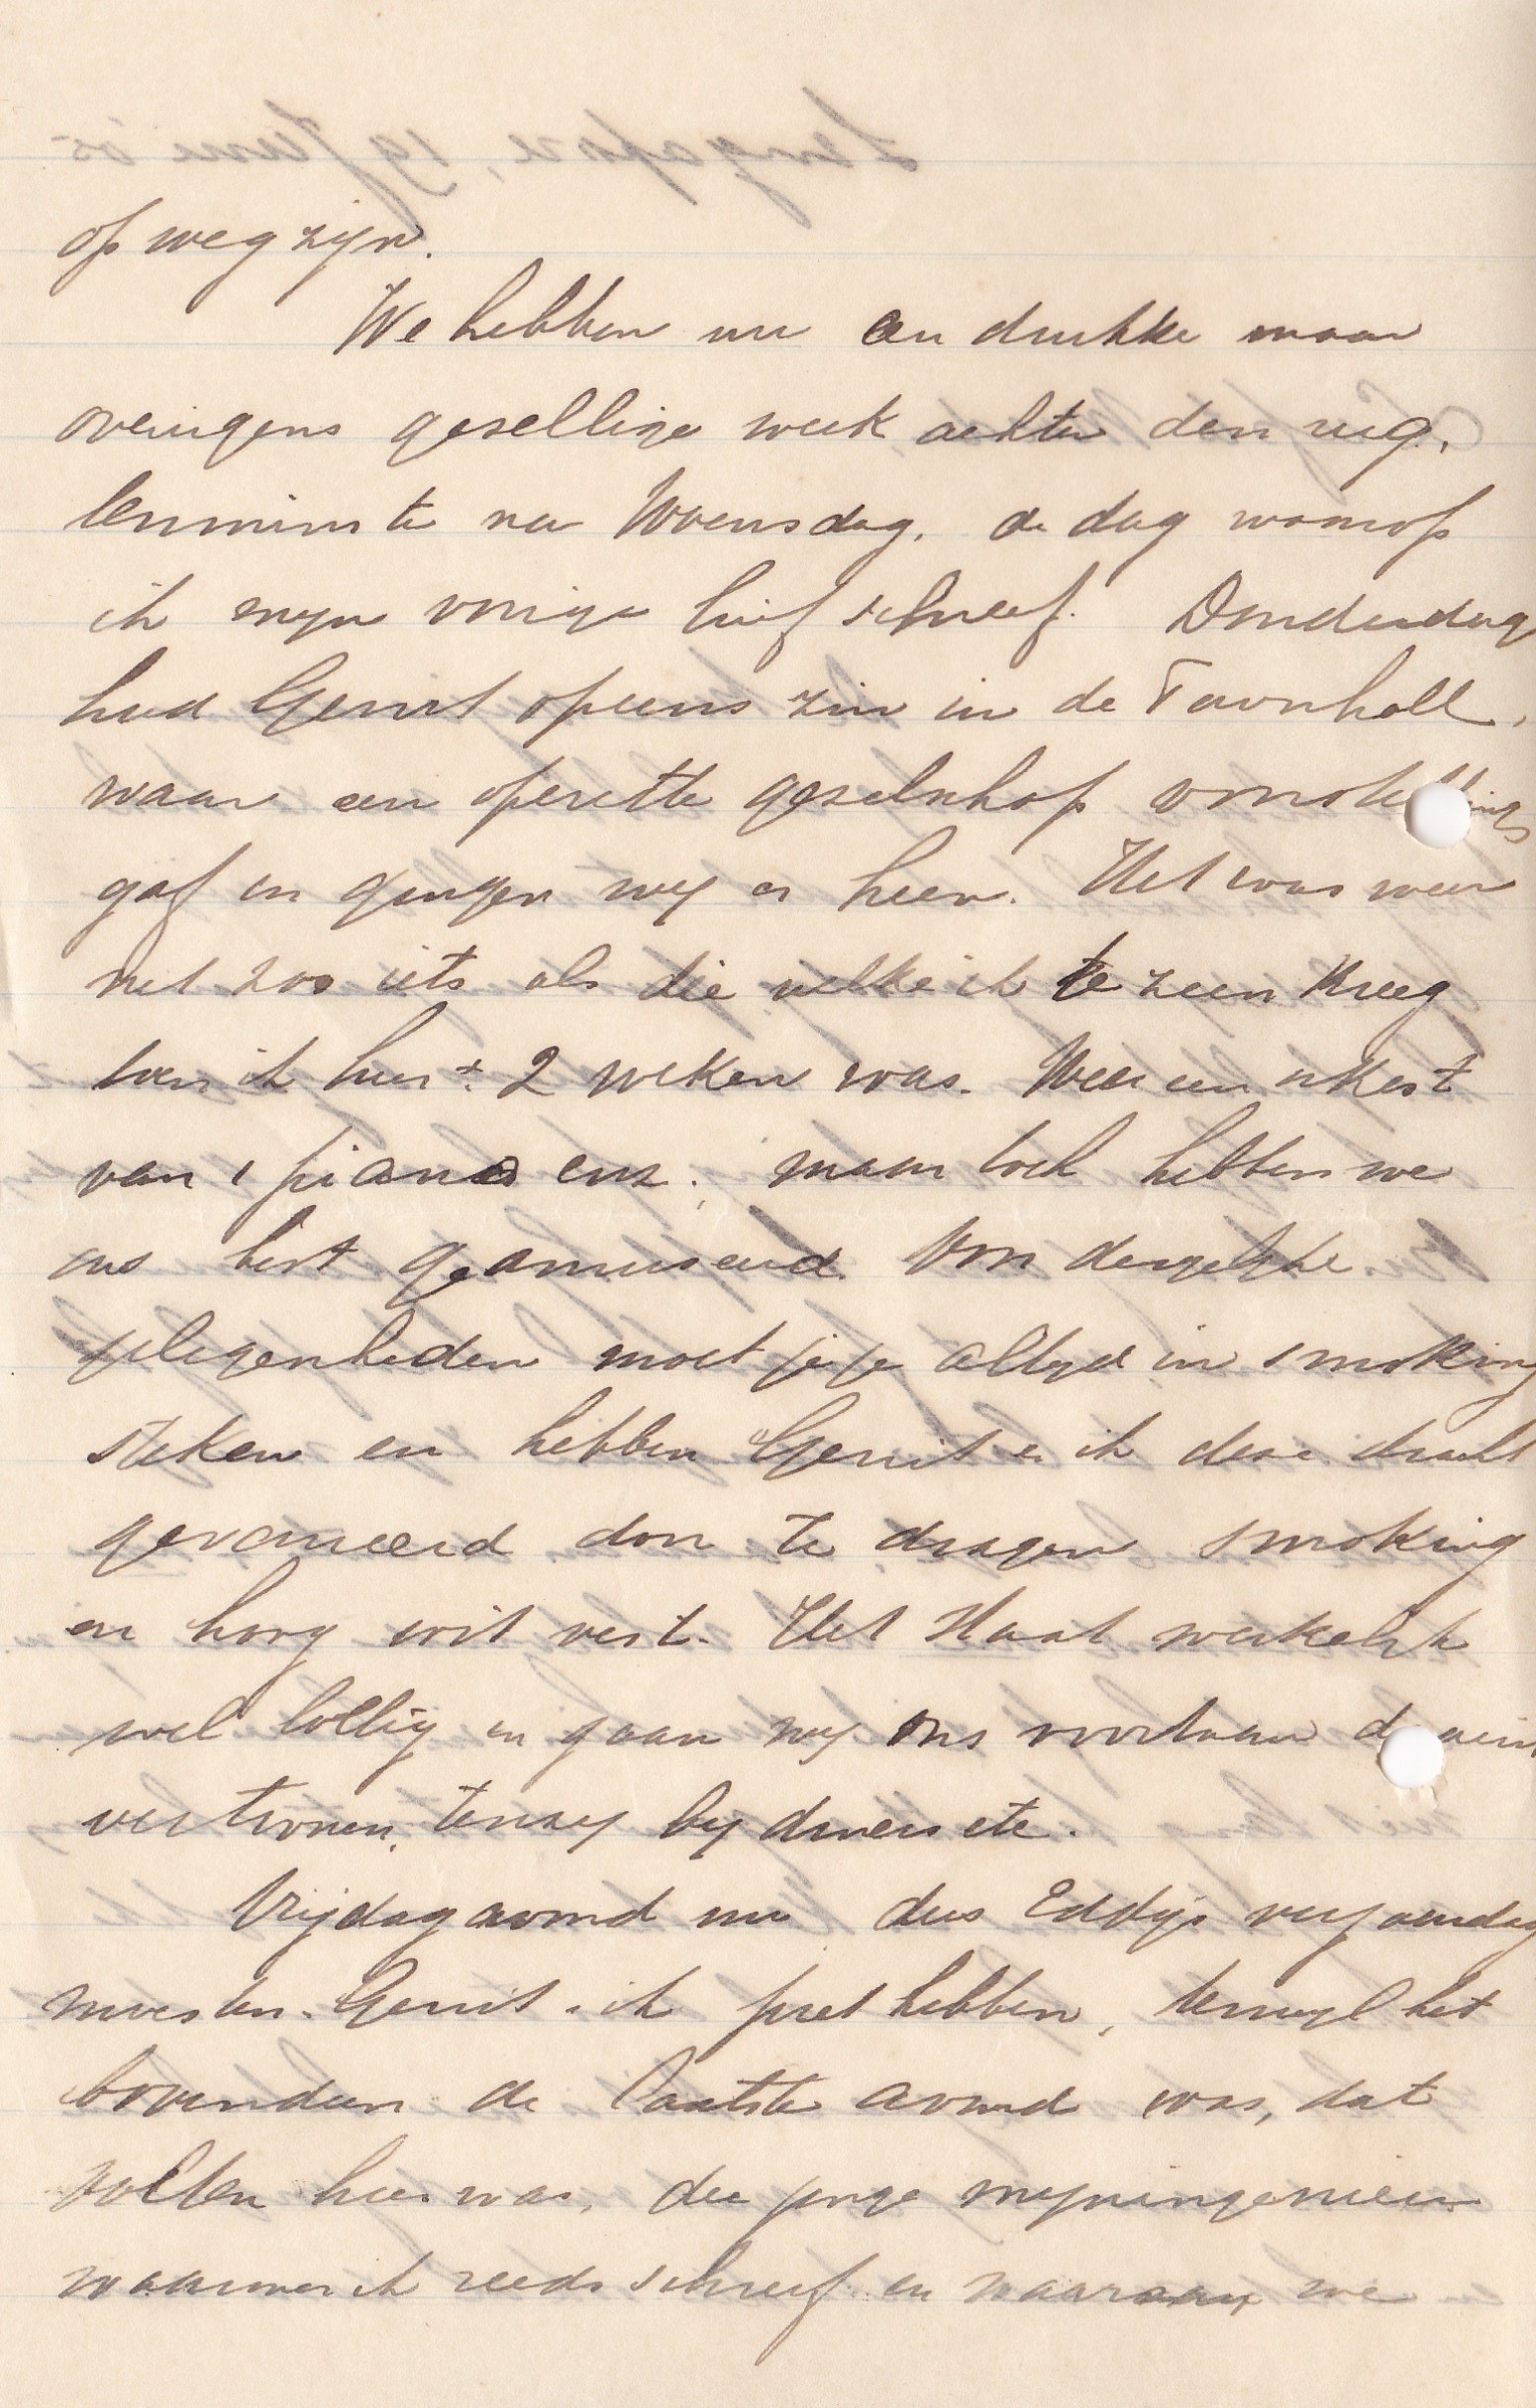 op weg zijn.
We hebben nu een drukke maar
overigens gezellige week achter den rug,
tenminste na Woensdag, de dag waarop
ik mijn vorige brief schreef. Donderdag
had Gerrit opeens zin in de Townhall,
waar een operette gezelschap voorstellings
gaf en gingen wij er heen. Het was weer
net zoo iets als die welke ik te zien kreeg
toen ik hier ± 2 weken was. Weer een orkest
van 1 piano enz., maar toch hebben we
ons best geamuseerd. Voor dergelijke
gelegenheden moet je je altijd in smoking
steken en hebben Gerrit en ik deze dracht
gevarieerd door te dragen smoking
en hoog wit vest. Het staat werkelijk
wel lollig en gaan wij ons voortaan daarin
vertoonen, tenzij bij diners etc.
Vrijdagavond nu dus Eddijs verjaardag
moesten Gerrit & ik pret hebben, terwijl het
bovendien de laatste avond was, dat
Volten hier was, die jonge mijningenieur
waarover ik reeds schreef en waaraan we